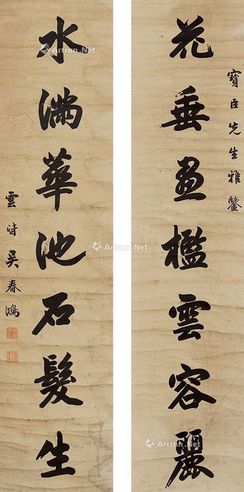 寶臣先生雅鑒
花垂畫檻雲容麗
水滿華池石髮生
雲時吳春鴻
Artron.Net
Artron.Net